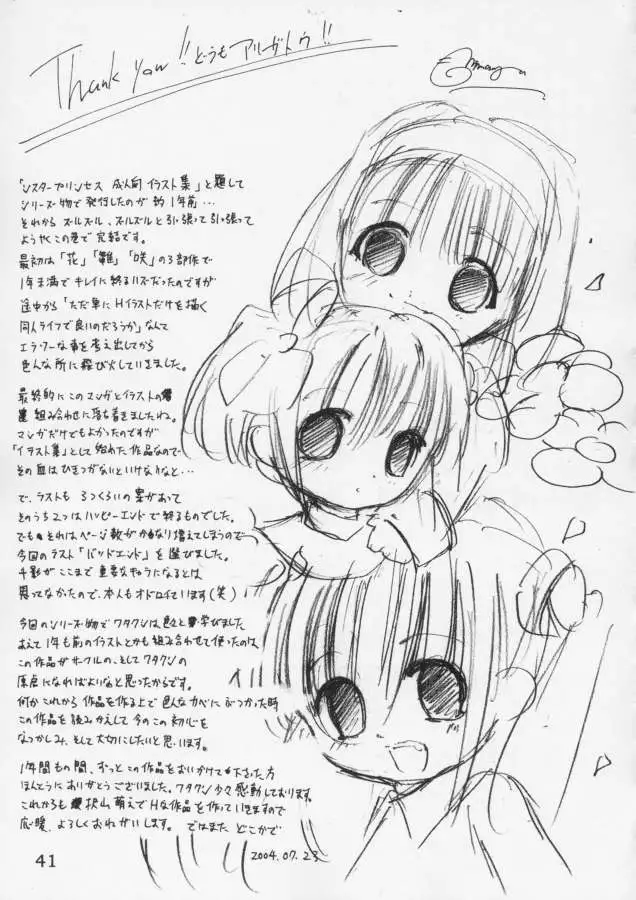 Thank you!! どうもアリガトウ!!
「シスタープリンセス 成人向 イラスト集」と題して
シリーズ物で発行したのが約1年前…
それから ズルズル、ズルズルと引っ張って引っ張って
ようやくこの巻で完結です。
最初は「花」「雛」「咲」の3部作で
1年未満でキレイに終るハズだったのですが
途中から「ただ単にHイラストだけを描く
同人ライフで良いのだろうか」なんて
エラソーな事を考え出してから
色んな所に飛び火していきました。
最終的にこのマンガとイラストの
組み合わせに落ち着きましたね。
マンガだけでもよかったのですが
「イラスト集」として始めた作品なので
その血はひきつがないといけないなと…
で、ラストも 3つくらいの案があって
そのうち2つはハッピーエンドで終るものでした。
でも それはページ数がかなり増えてしまうので
今回のラスト「バッドエンド」を選びました。
千影がここまで重要なキャラになるとは
思ってなかったので、本人もオドロイています(笑)
今回のシリーズ物でワタクシは色々と学びました
あえて1年も前のイラストとかも組み合わせて使ったのは
この作品がサークルの、そしてワタクシの
原点になればよいなと思ったからです。
何かこれから作品を作る上で色んなカベにぶつかった時
この作品を読みかえして今のこの初心を
なつかしみ、そして大切にしたいと思います。
1年間もの間、ずっとこの作品をおいかけて下さった方
ほんとうにありがとうございました。ワタクシ少々感動しております。
これからも 沢山萌えでHな作品を作っていきますので
応援、よろしくおねがいします。ではまた どこかで
2004.07.23
41